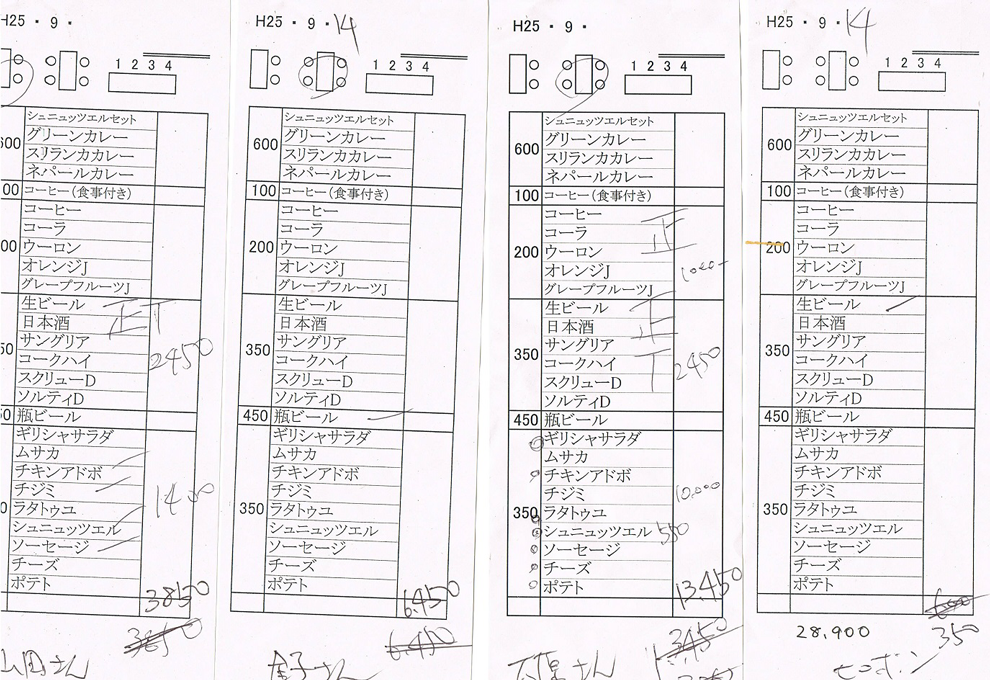 H25・9・
1 2 3 4
シュニュッツエルセット
グリーンカレー
スリランカカレー
ネパールカレー
コーヒー(食事付き)
コーヒー
コーラ
ウーロン
オレンジJ
グレープフルーツJ
生ビール
日本酒
正T
サングリア
コークハイ
2450
スクリューD
ソルティD
瓶ビール
ギリシャサラダ
ムサカ
チキンアドボ
チジミ
1400
ラタトゥユ
シュニュッツエル
ソーセージ
チーズ
ポテト
3850
山田さん
H25・9・14
1 2 3 4
600
シュニュッツエルセット
グリーンカレー
スリランカカレー
ネパールカレー
100 コーヒー(食事付き)
200
コーヒー
コーラ
ウーロン
オレンジJ
グレープフルーツJ
350
生ビール
日本酒
サングリア
コークハイ
スクリューD
ソルティD
450 瓶ビール
350
ギリシャサラダ
ムサカ
チキンアドボ
チジミ
ラタトゥユ
シュニュッツエル
ソーセージ
チーズ
ポテト
6.450
6.450
金子さん
H25・9・
1 2 3 4
600
シュニュッツエルセット
グリーンカレー
スリランカカレー
ネパールカレー
100 コーヒー(食事付き)
200
コーヒー
コーラ
正
ウーロン
オレンジJ
1000-
グレープフルーツJ
350
生ビール
日本酒
正T
サングリア
コークハイ
2450
スクリューD
ソルティD
450 瓶ビール
350
ギリシャサラダ
ムサカ
チキンアドボ
チジミ
10,000
ラタトゥユ
シュニュッツエル
550
ソーセージ
チーズ
ポテト
13.450
13450
さん
H25・9・14
1 2 3 4
600
シュニュッツエルセット
グリーンカレー
スリランカカレー
ネパールカレー
100 コーヒー(食事付き)
200
コーヒー
コーラ
ウーロン
オレンジJ
グレープフルーツJ
350
生ビール
日本酒
サングリア
コークハイ
スクリューD
ソルティD
450 瓶ビール
350
ギリシャサラダ
ムサカ
チキンアドボ
チジミ
ラタトゥユ
シュニュッツエル
ソーセージ
チーズ
ポテト
28,900
350